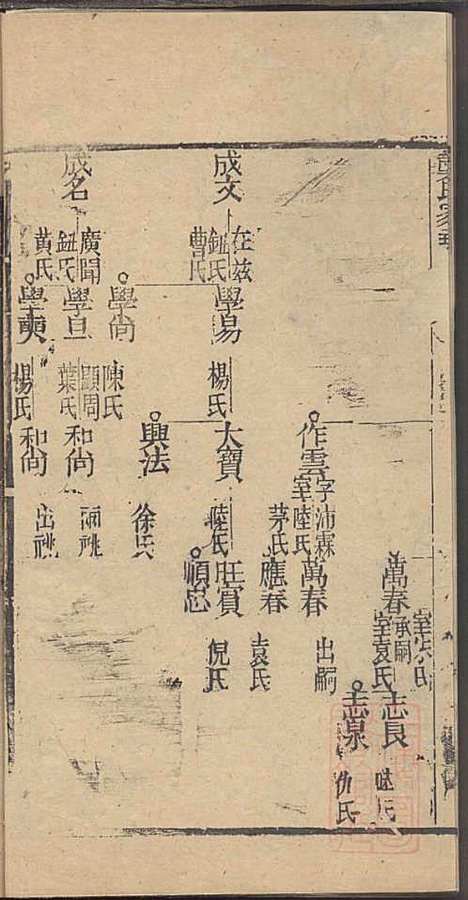 室宋氏
萬春
承嗣
室袁氏
志良
志泉
仇氏
作雲
字沛霖
室陸氏
茅氏
萬春
出嗣
應春
袁氏
成文
在茲
鈕氏
曹氏
學易
楊氏
大寶
陸氏
旺寶
倪氏
順忠
興法
徐氏
成名
廣聞
鈕氏
黃氏
學尚
陳氏
學旦
顯周
葉氏
和尚
兩祧
學奭
楊氏
和尚
出祧